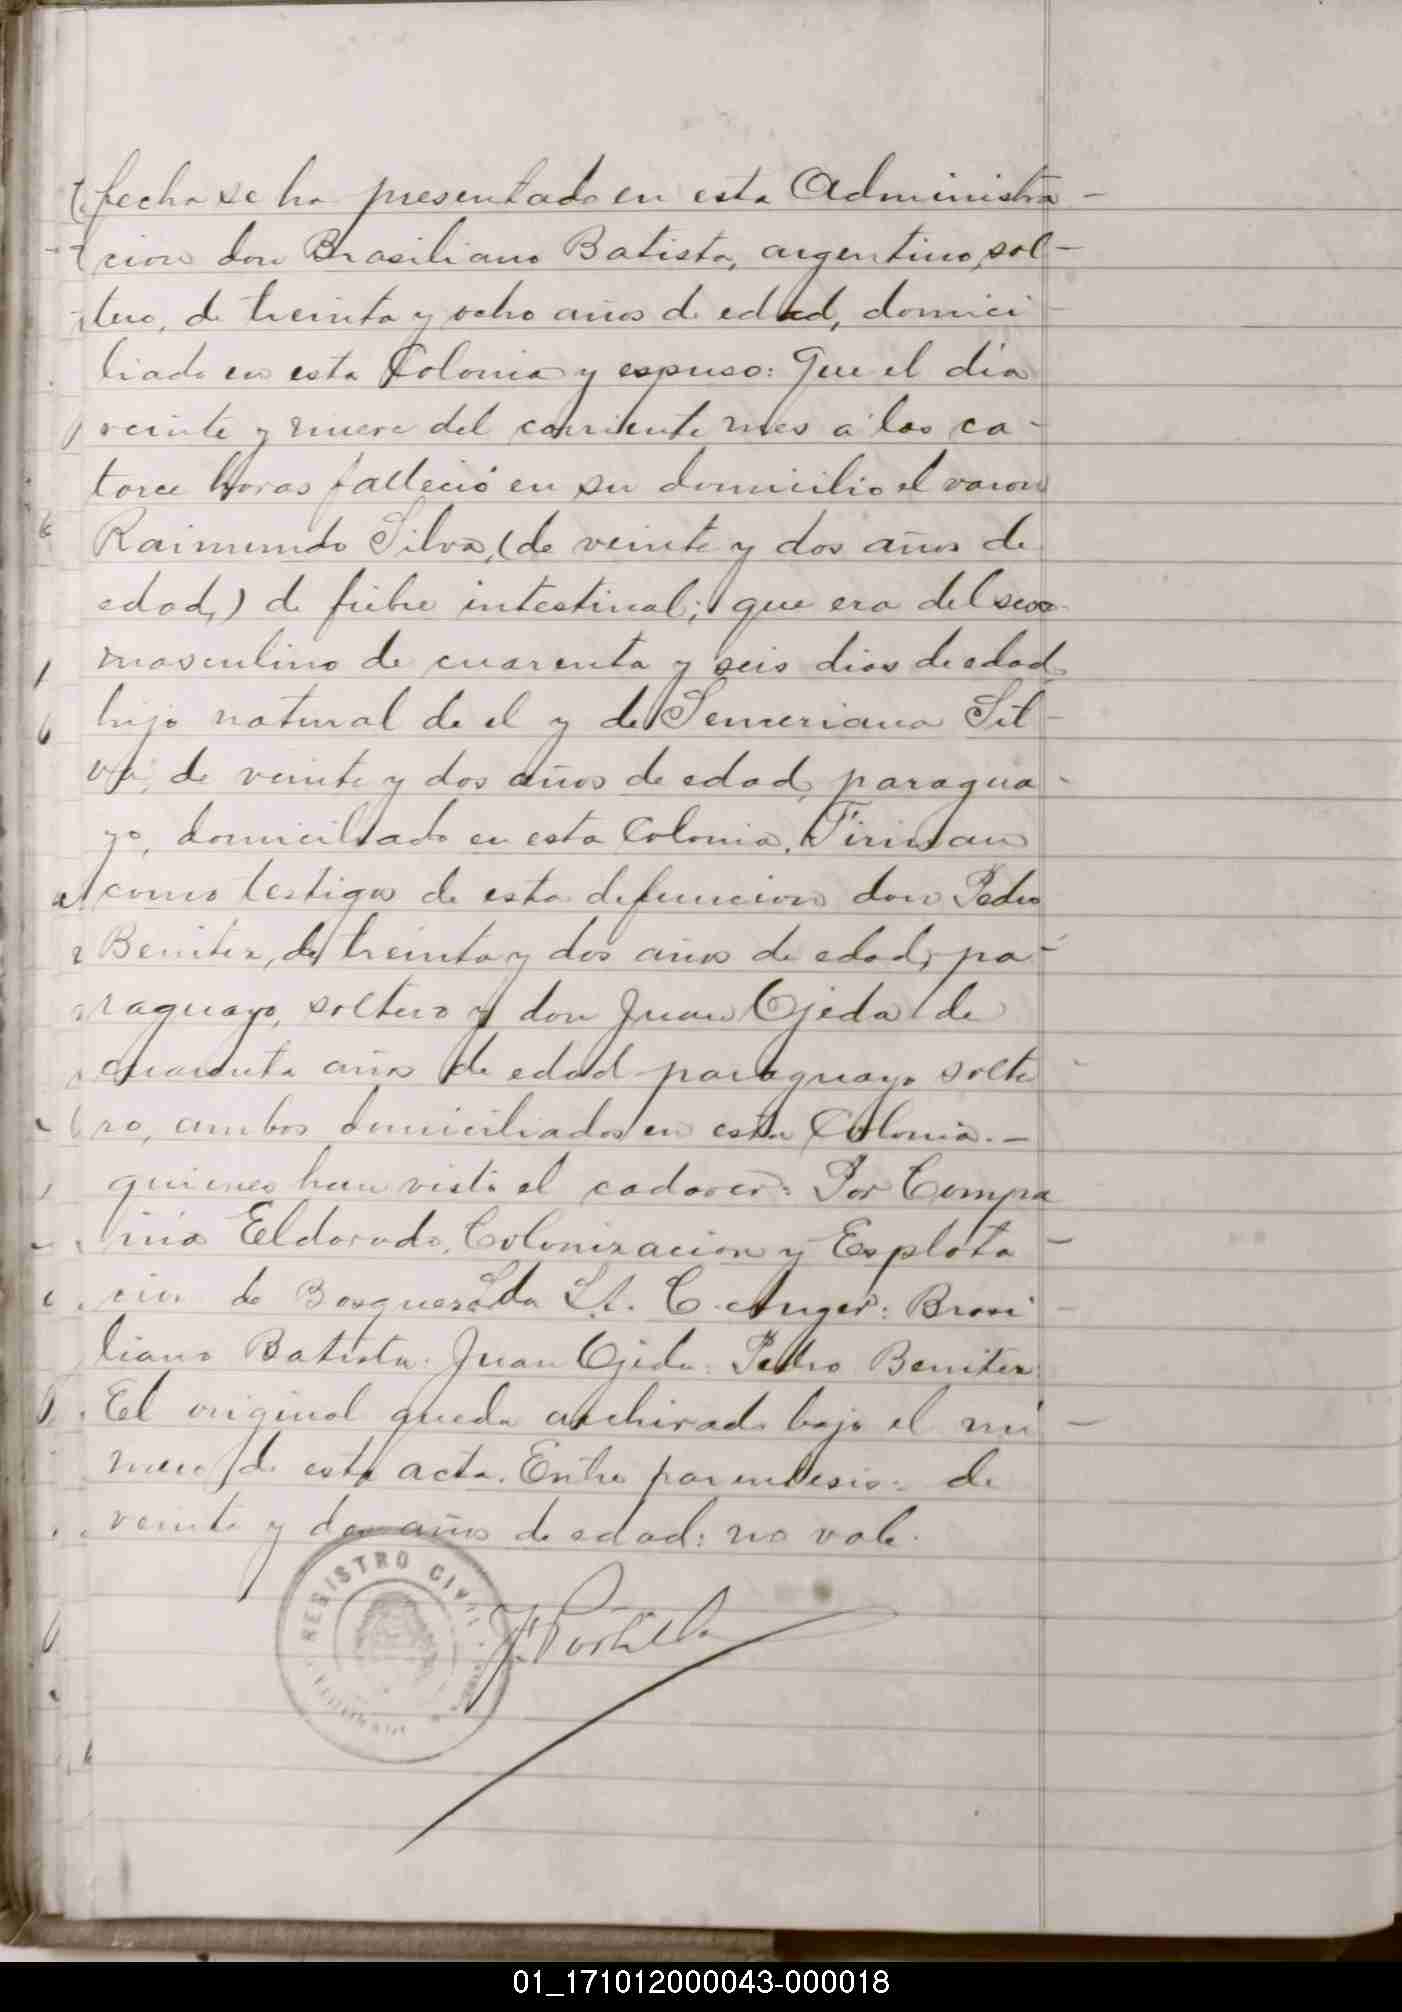 fecha se ha presentado en esta Administra-
cion don Brasiliano Batista, argentino, sol-
tero, de treinta y ocho años de edad, domici-
liado en esta Colonia y espuso: Que el dia
veinte y nueve del corriente mes a las ca-
torce horas falleció en su domicilio el varon
Raimundo Silva, (de veinte y dos años de
edad,) de fiebre intestinal; que era del sexo
masculino de cuarenta y seis dias de edad,
hijo natural de el y de Semeriana Sil-
va, de veinte y dos años de edad, paragua-
yo, domiciliado en esta Colonia. Firman
como testigos de esta defuncion don Pedro
Benitez, de treinta y dos años de edad, pa-
raguayo, soltero y don Juan Ojeda de
cuarenta años de edad paraguayo solte-
ro, ambos domiciliados en esta Colonia.-
quienes han visto el cadaver: Por Compa
ñia Eldorado, Colonizacion y Esplota-
cion de Bosques Ltda C. Auger: Brasi-
liano Batista: Juan Ojeda: Pedro Benitez:
El original queda archivado bajo el nú-
mero de esta acta. Entre parentesis: de
veinte y dos años de edad: no vale.
REGISTRO CIVIL
J. Portillo
01_171012000043-000018